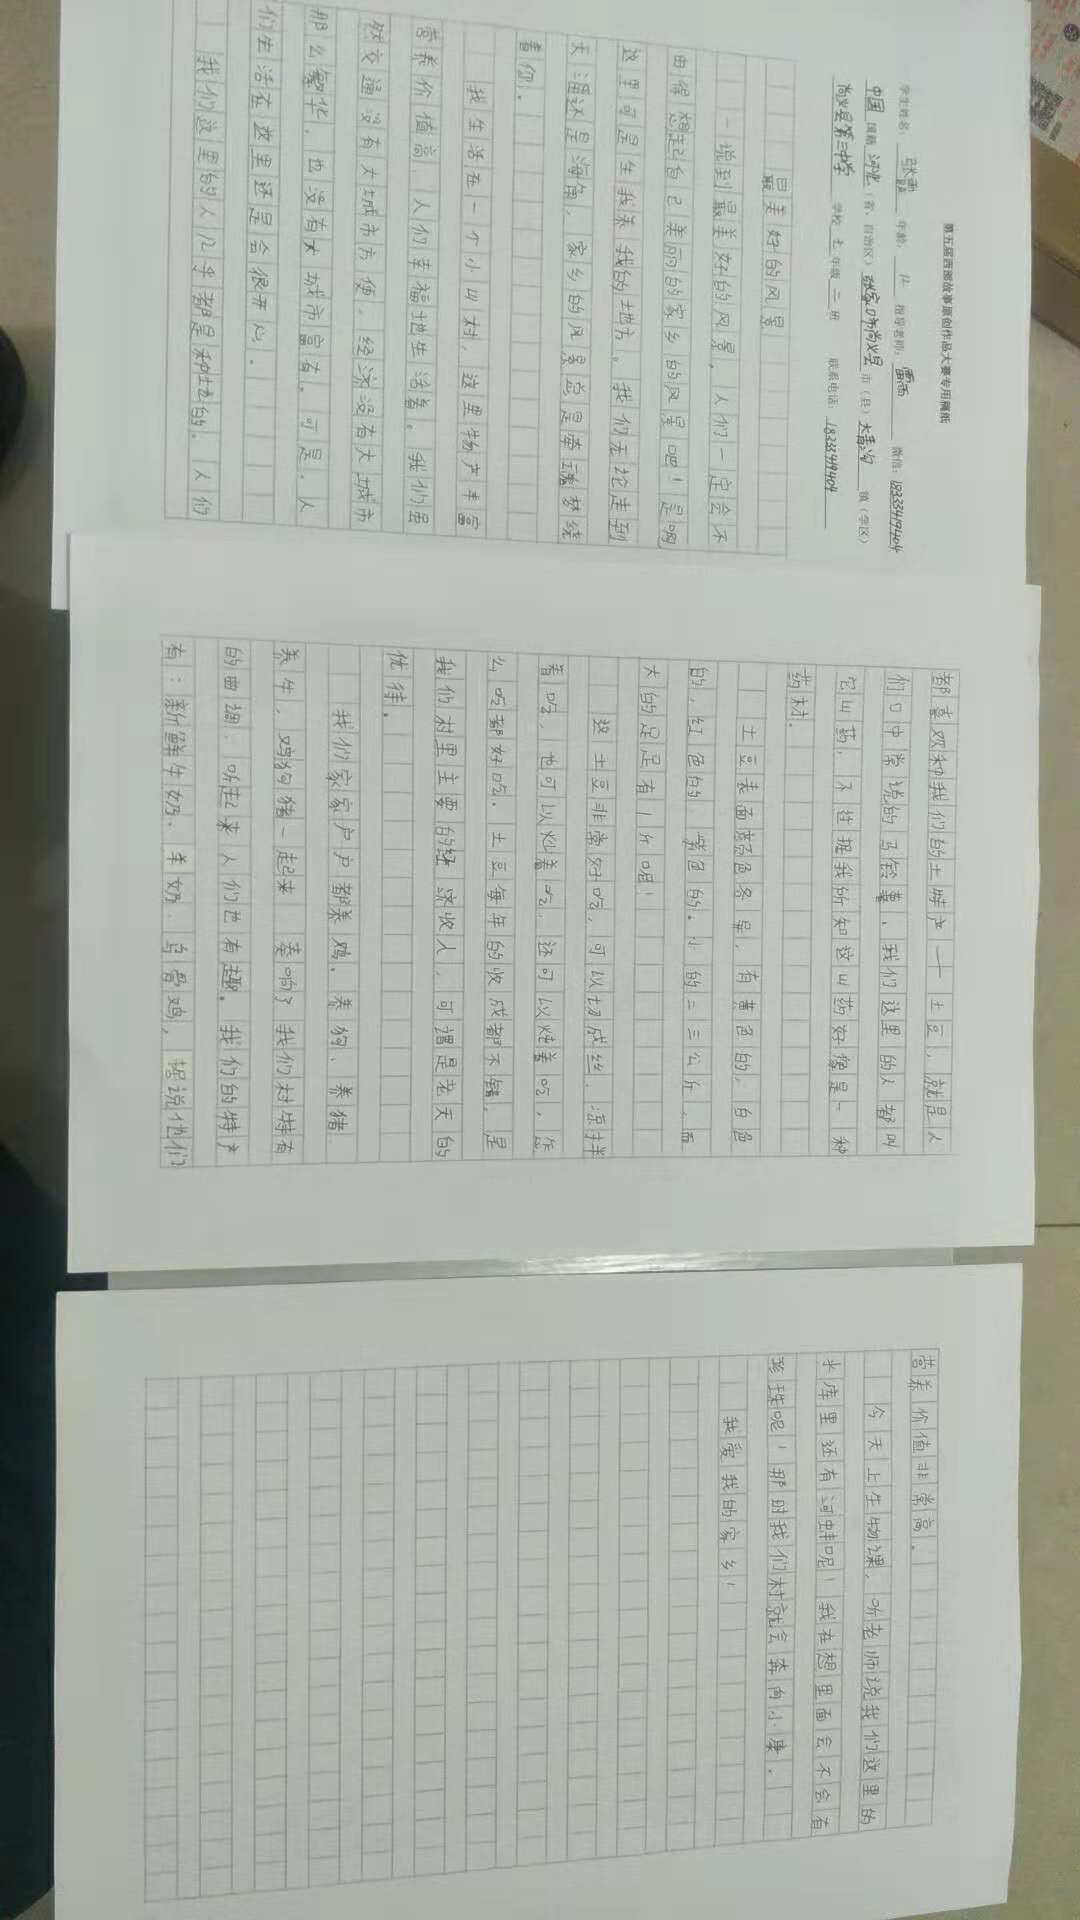 第五届西部故事原创作品大赛专用稿纸
学生姓名： 年龄：12 指导老师： 雷雨 微信：18333419404
中国 国籍 河北（省、自治区）张家口市尚义县 市（县）大青沟 镇（学区）
尚义县第三中学 学校 七 年级 二 班 联系电话：18333419404
最美好的风景
一说到最美好的风景，人们一定会不
由得想起自己美丽的家乡的风景吧！是啊
这里可是生我养我的地方。我们无论走到
天涯还是海角，家乡的风景总是牵魂梦绕
着你。
我生活在一个小山村，这里物产丰富
营养价值高，人们幸福地生活着。我们虽
然交通没有大城市方便，经济没有大城市
那么繁华，也没有大城市富有。可是，人
们生活在这里还是会很开心。
我们这里的人几乎都是种地的，人们
都喜欢种我们的土特产——土豆，就是人
们口中常说的马铃薯，我们这里的人都叫
它山药，不过据我所知这山药好像是一种
药材。
土豆表面颜色各异，有黄色的，白色
的，红色的，紫色的。小的二三公斤，而
大的足足有1斤呢！
这土豆非常好吃，可以切成丝，凉拌
着吃，也可以炒着吃，还可以炖着吃，怎
么吃都好吃。土豆每年的收成都不错，是
我们村里主要的经济收入，可谓是老天的
优待。
我们家家户户都养鸡、养狗、养猪
养牛，鸡狗猪一起来 奏响了我们村特有
的曲调，听起来人们也有趣。我们的特产
有：新鲜牛奶、羊奶、乌骨鸡，据说他们
营养价值非常高。
今天上生物课，听老师说我们这里的
水库里还有河蚌呢！我在想里面会不会有
珍珠呢！那时我们村就会奔向小康。
我爱我的家乡！